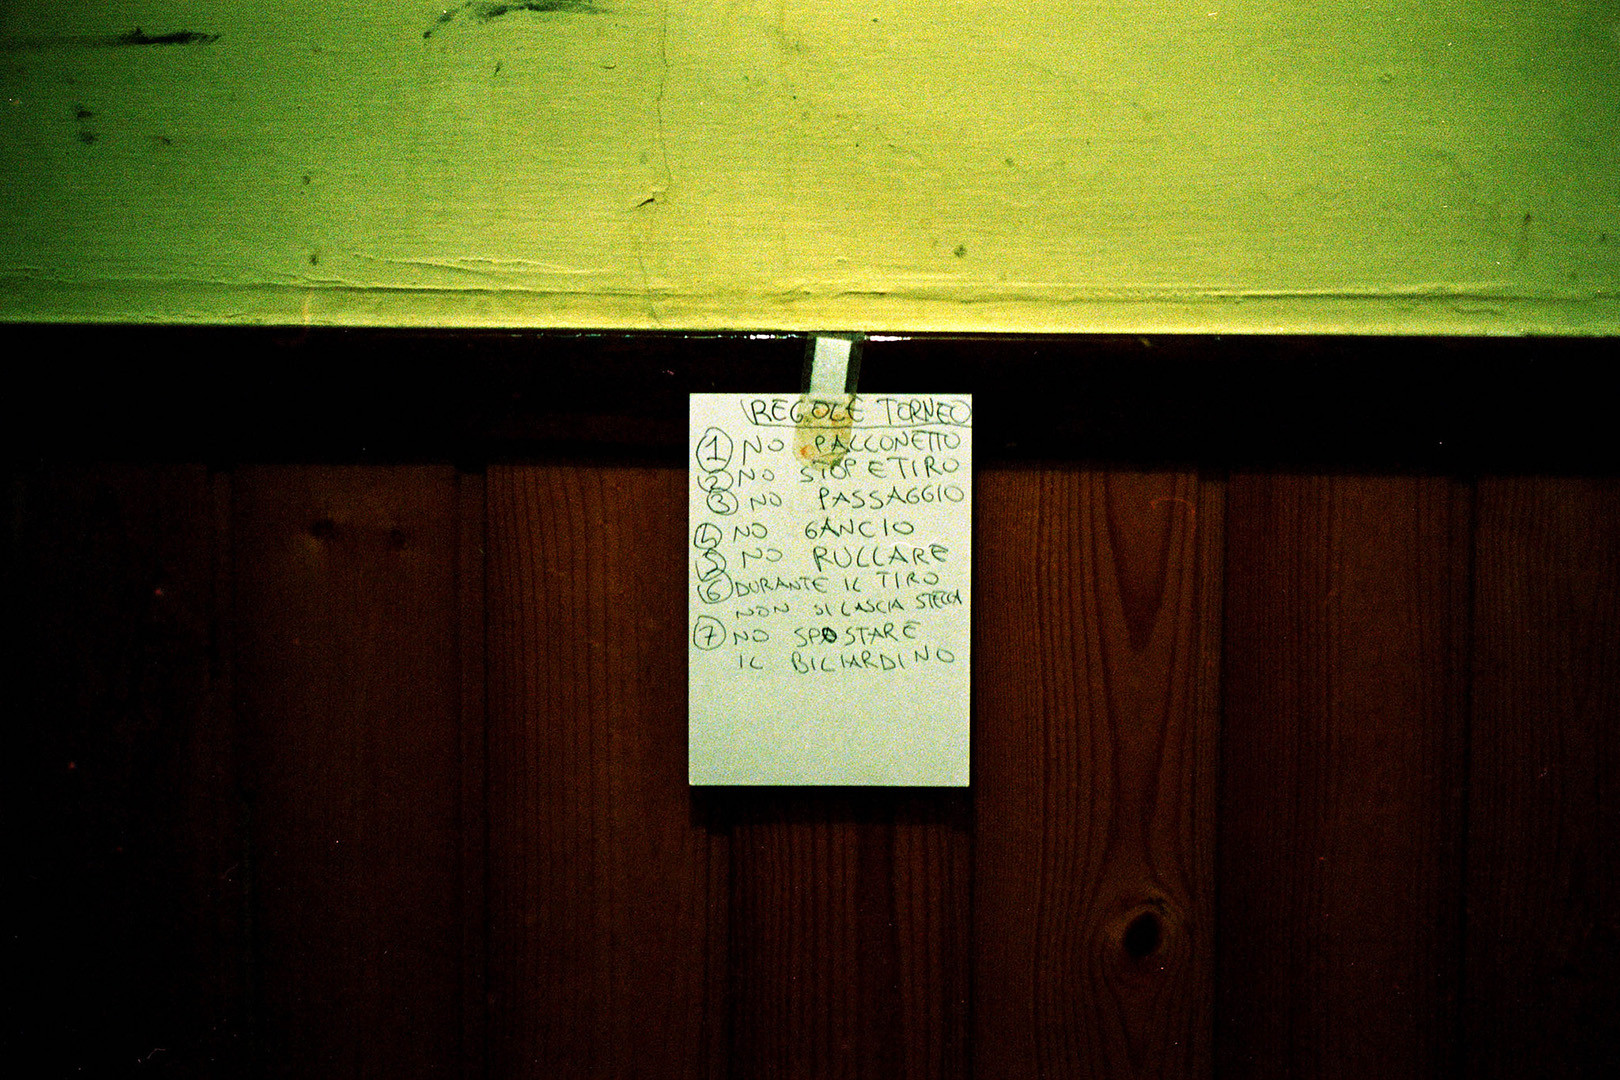 REGOLE TORNEO
1 NO PALLONETTO
2 NO STOP E TIRO
3 NO PASSAGGIO
4 NO GANCIO
5 NO RULLARE
6 DURANTE IL TIRO
NON SI LASCIA STECCA
7 NO SPOSTARE
IL BILIARDINO